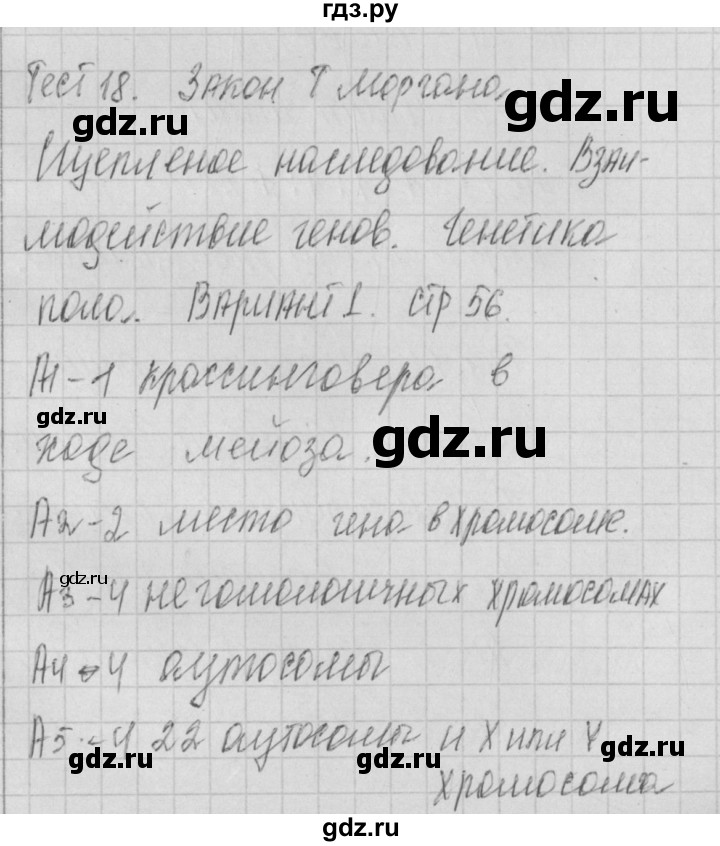 гдз.ру
Тест 18. Закон Т Моргана.
gdz.ru
gdz.ru
Сцепленое наследование. Взаи-
модействие генов. Генетика
пола. Вариант 1. стр 56.
А1-1 кроссинговера в
gdz.ru
gdz.ru
ходе мейоза.
А2-2 место гена в хромосоме.
gdz.ru
А3-4 негомологичных хромосомах
А4-4 аутосомы
А5-4 22 аутосомы и Х или Y
gdz.ru
gdz.ru
gdz.ru
хромосома
gdz.ru